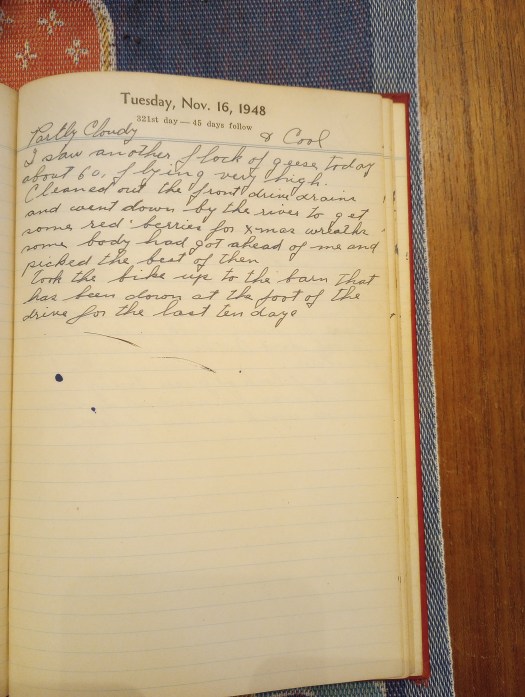 Tuesday, Nov. 16, 1948
321st day — 45 days follow
Partly Cloudy & Cool
I saw another flock of geese today
about 60, flying very high.
Cleaned out the front drive drains
and went down by the river to get
some red berries for Xmas wreaths
some body had got ahead of me and
picked the best of then
took the bike up to the barn that
has been down at the foot of the
drive for the last ten days